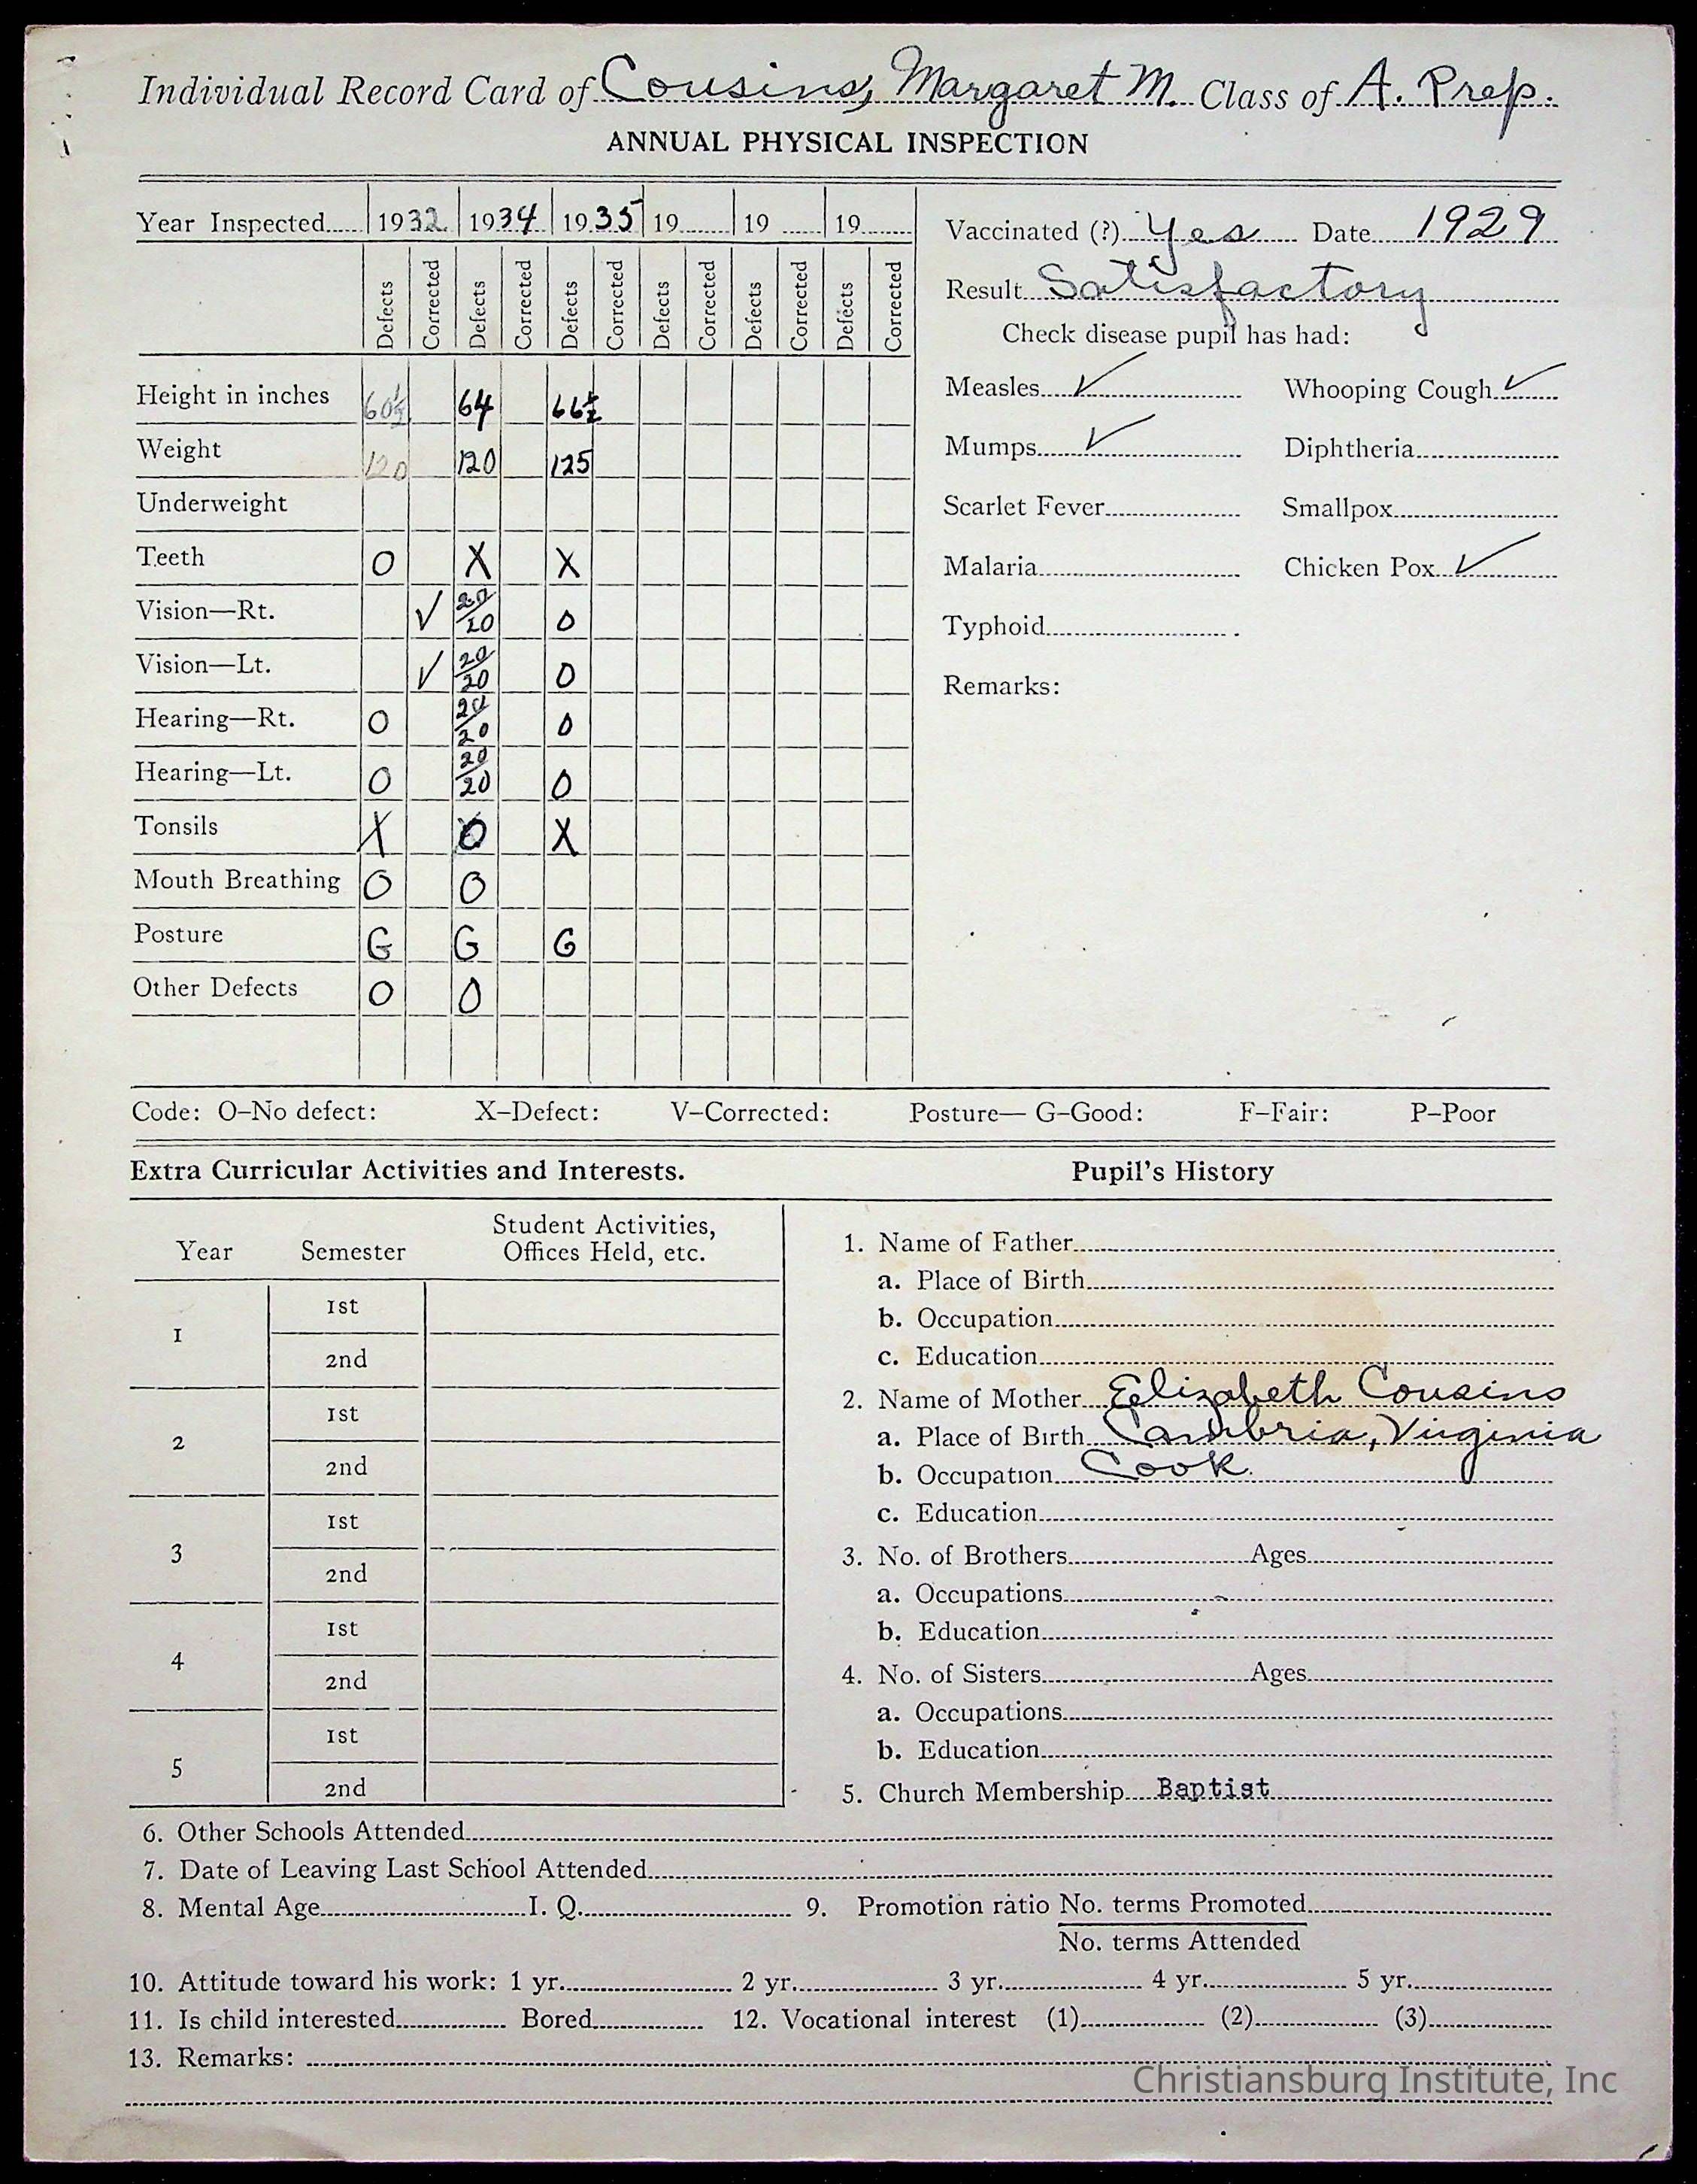 Individual Record Card of Cousins, Margaret M. Class of A. Prep.
ANNUAL PHYSICAL INSPECTION
Year Inspected 1932 1934 1935 19 19 19
Defects Corrected Defects Corrected Defects Corrected Defects Corrected Defects Corrected Defects Corrected
Height in inches 60½ 64 66½
Weight 120 120 125
Underweight
Teeth O X X
Vision—Rt. ✓ 20/20 O
Vision—Lt. ✓ 20/20 O
Hearing—Rt. O 20/20 O
Hearing—Lt. O 20/20 O
Tonsils X O X
Mouth Breathing O O
Posture G G G
Other Defects O O
Vaccinated (?) Yes Date 1929
Result Satisfactory
Check disease pupil has had:
Measles ✓ Whooping Cough ✓
Mumps ✓ Diphtheria
Scarlet Fever Smallpox
Malaria Chicken Pox ✓
Typhoid
Remarks:
Code: O–No defect: X–Defect: V–Corrected: Posture— G–Good: F–Fair: P–Poor
Extra Curricular Activities and Interests.
Year Semester Student Activities,
Offices Held, etc.
1 1st
2nd
2 1st
2nd
3 1st
2nd
4 1st
2nd
5 1st
2nd
Pupil's History
1. Name of Father
a. Place of Birth
b. Occupation
c. Education
2. Name of Mother Elizabeth Cousins
a. Place of Birth Cambria, Virginia
b. Occupation Cook
c. Education
3. No. of Brothers Ages
a. Occupations
b. Education
4. No. of Sisters Ages
a. Occupations
b. Education
5. Church Membership Baptist
6. Other Schools Attended
7. Date of Leaving Last School Attended
8. Mental Age I. Q. 9. Promotion ratio No. terms Promoted
No. terms Attended
10. Attitude toward his work: 1 yr. 2 yr. 3 yr. 4 yr. 5 yr.
11. Is child interested Bored 12. Vocational interest (1) (2) (3)
13. Remarks:
Christiansburg Institute, Inc